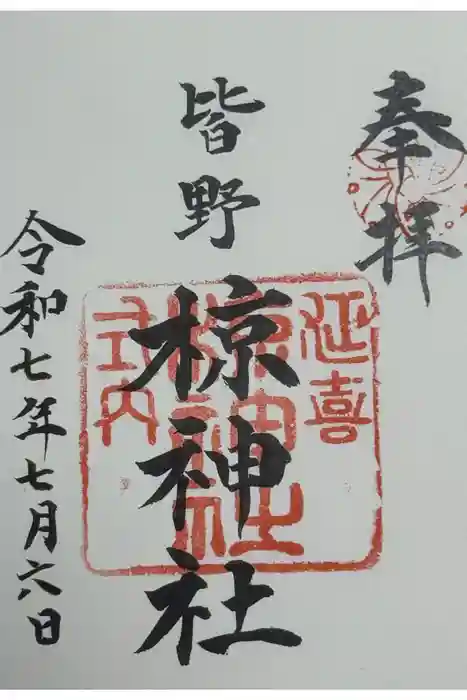 奉拝
皆野
椋神社
令和七年七月六日
延喜
椋神社
式内